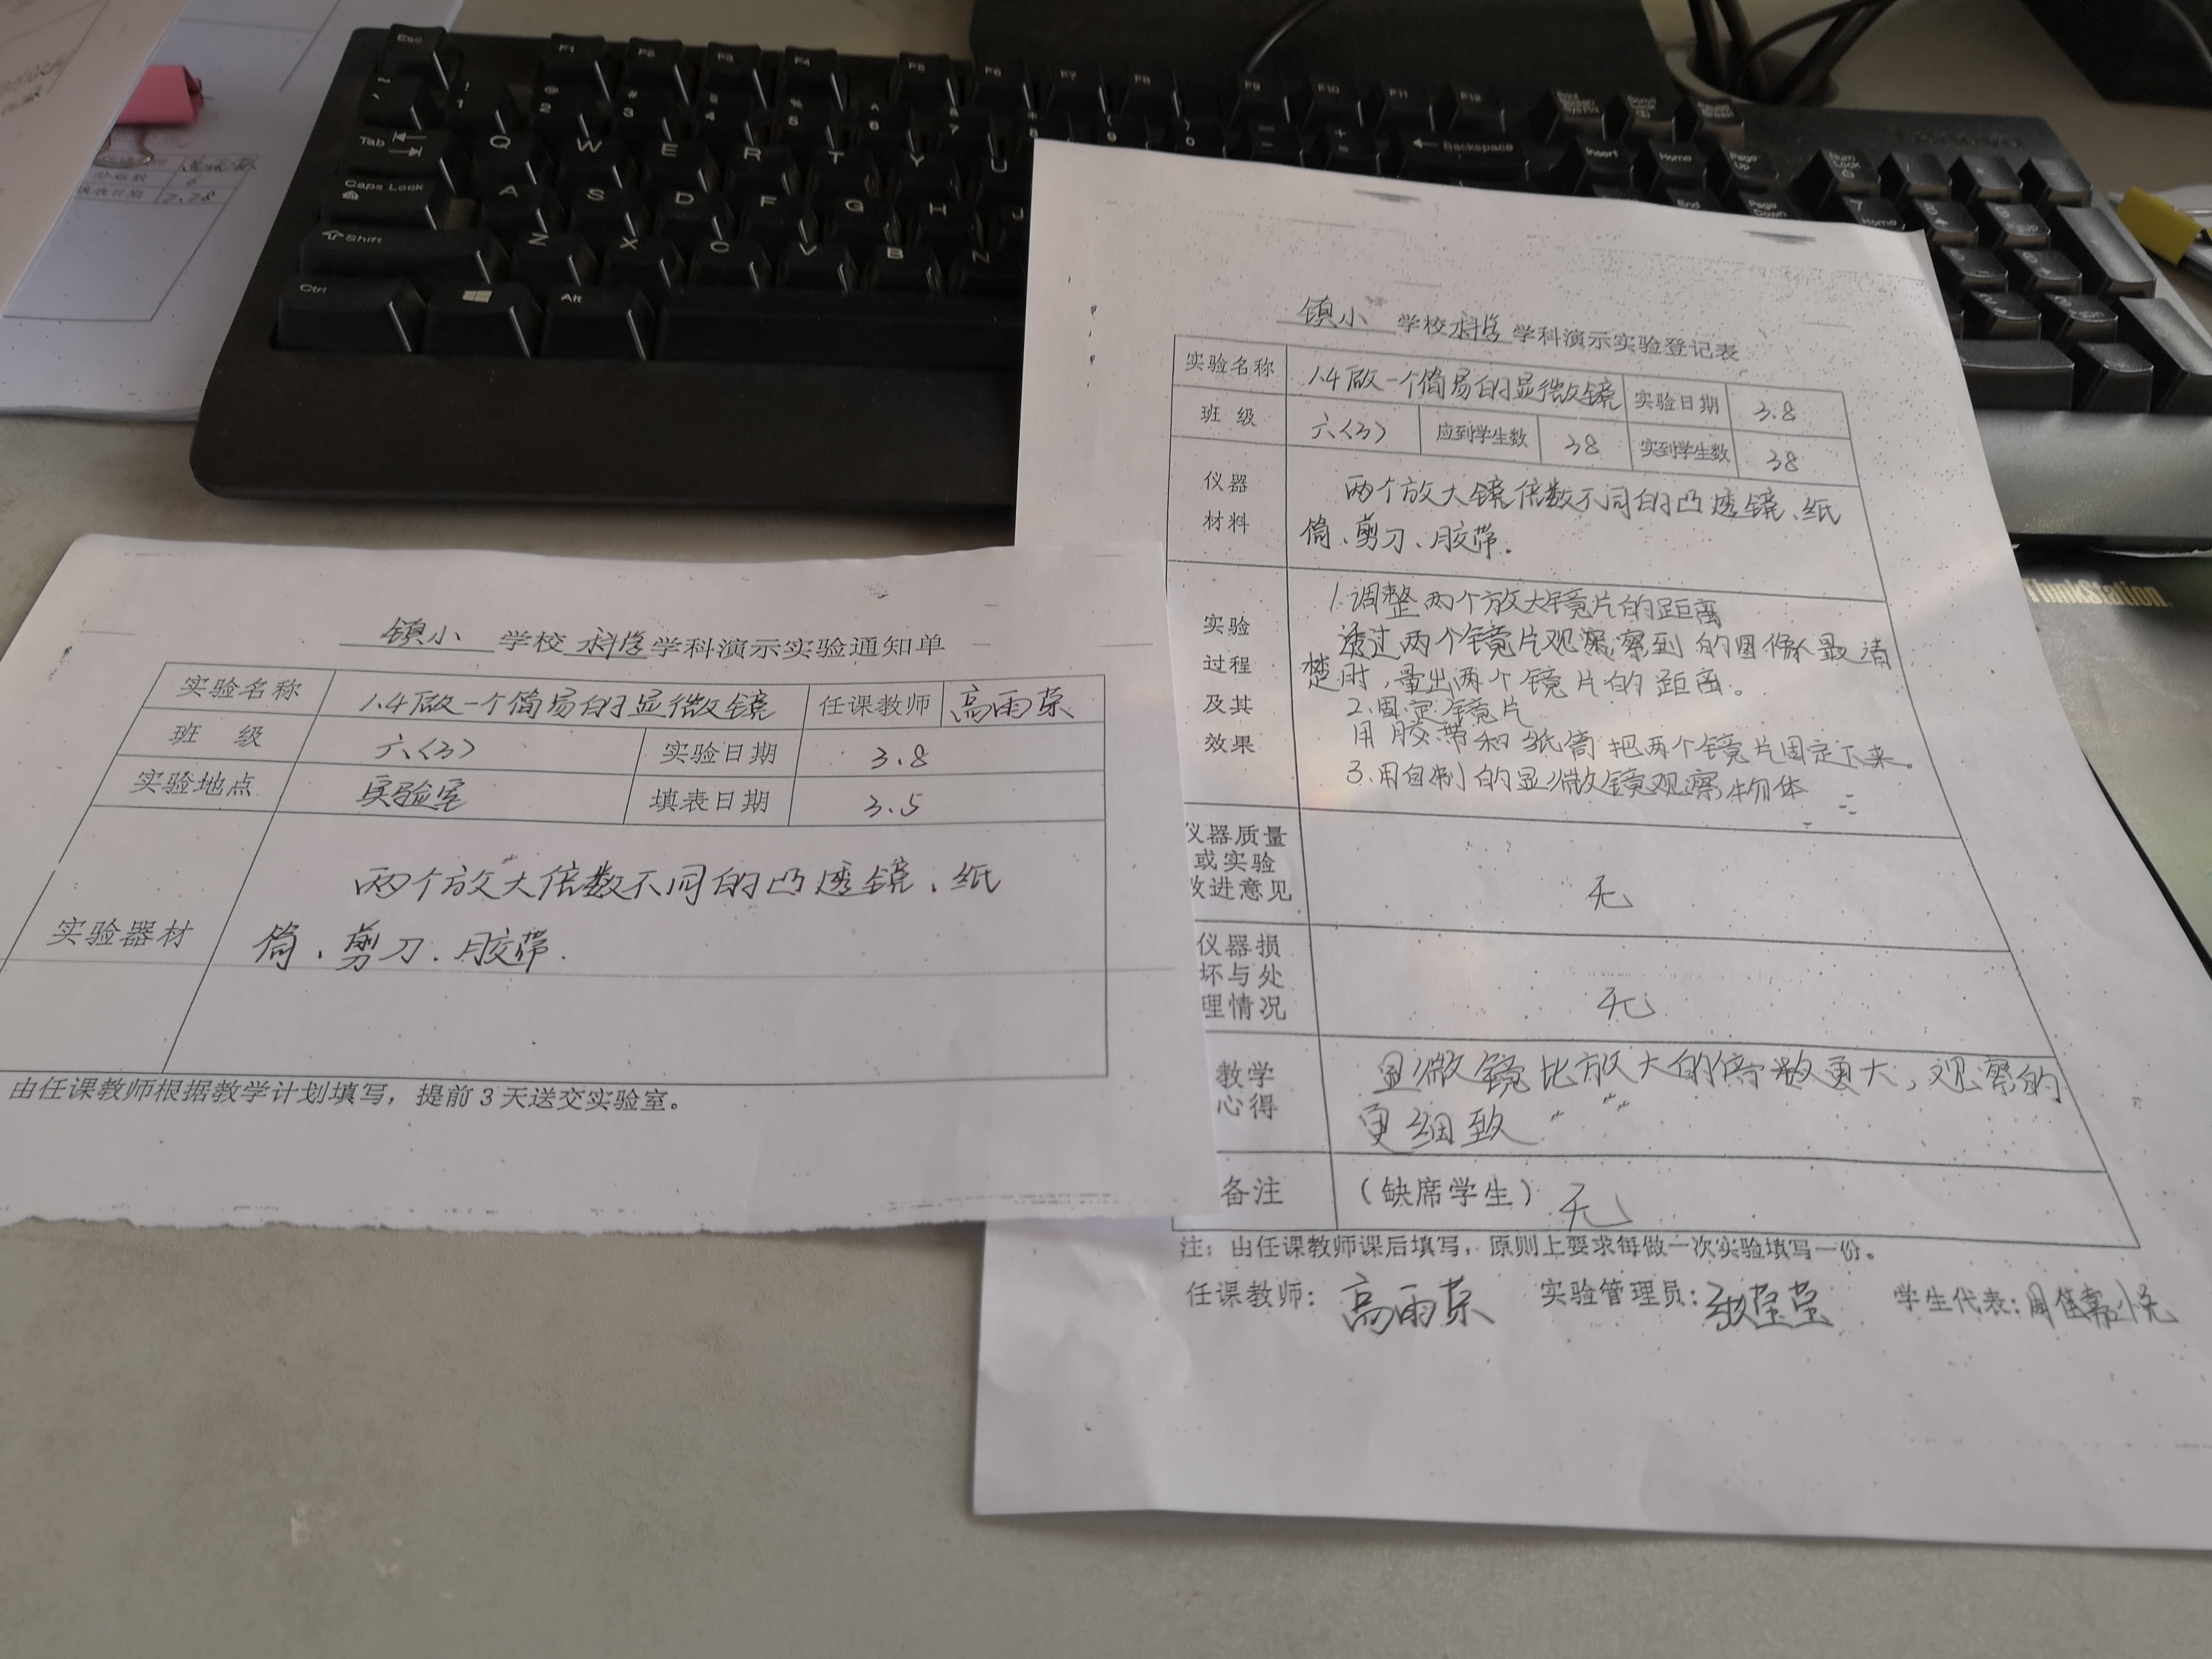 Esc F1 F2 F3 F4 F5 F6 F7 F8 F9 F10 F11 F12
Tab Q W E R T Y U Backspace Insert Home Page Up Num Lock
Caps Lock A S D F G H J End Page Down 7 Home
Shift Z X C V B N
Ctrl Alt
ThinkStation
填表日期 2.28
镇小 学校 科学 学科演示实验通知单
实验名称 1.4做一个简易的显微镜 任课教师 高雨荣
班 级 六(3) 实验日期 3.8
实验地点 实验室 填表日期 3.5
实验器材 两个放大倍数不同的凸透镜、纸
筒、剪刀、胶带.
由任课教师根据教学计划填写，提前3天送交实验室。
镇小 学校 科学 学科演示实验登记表
实验名称 1.4做一个简易的显微镜 实验日期 3.8
班 级 六(3) 应到学生数 38 实到学生数 38
仪器材料 两个放大镜倍数不同的凸透镜、纸
筒、剪刀、胶带.
实验过程及其效果
1.调整两个放大镜片的距离
透过两个镜片观察,察到的图像最清
楚时,量出两个镜片的距离。
2.固定镜片
用胶带和纸筒把两个镜片固定下来。
3.用自制的显微镜观察物体
仪器质量或实验改进意见 无
仪器损坏与处理情况 无
教学心得 显微镜比放大的倍数更大,观察的
更细致
备注 (缺席学生) 无
注：由任课教师课后填写，原则上要求每做一次实验填写一份。
任课教师：高雨荣 实验管理员：张莹莹 学生代表：周佳